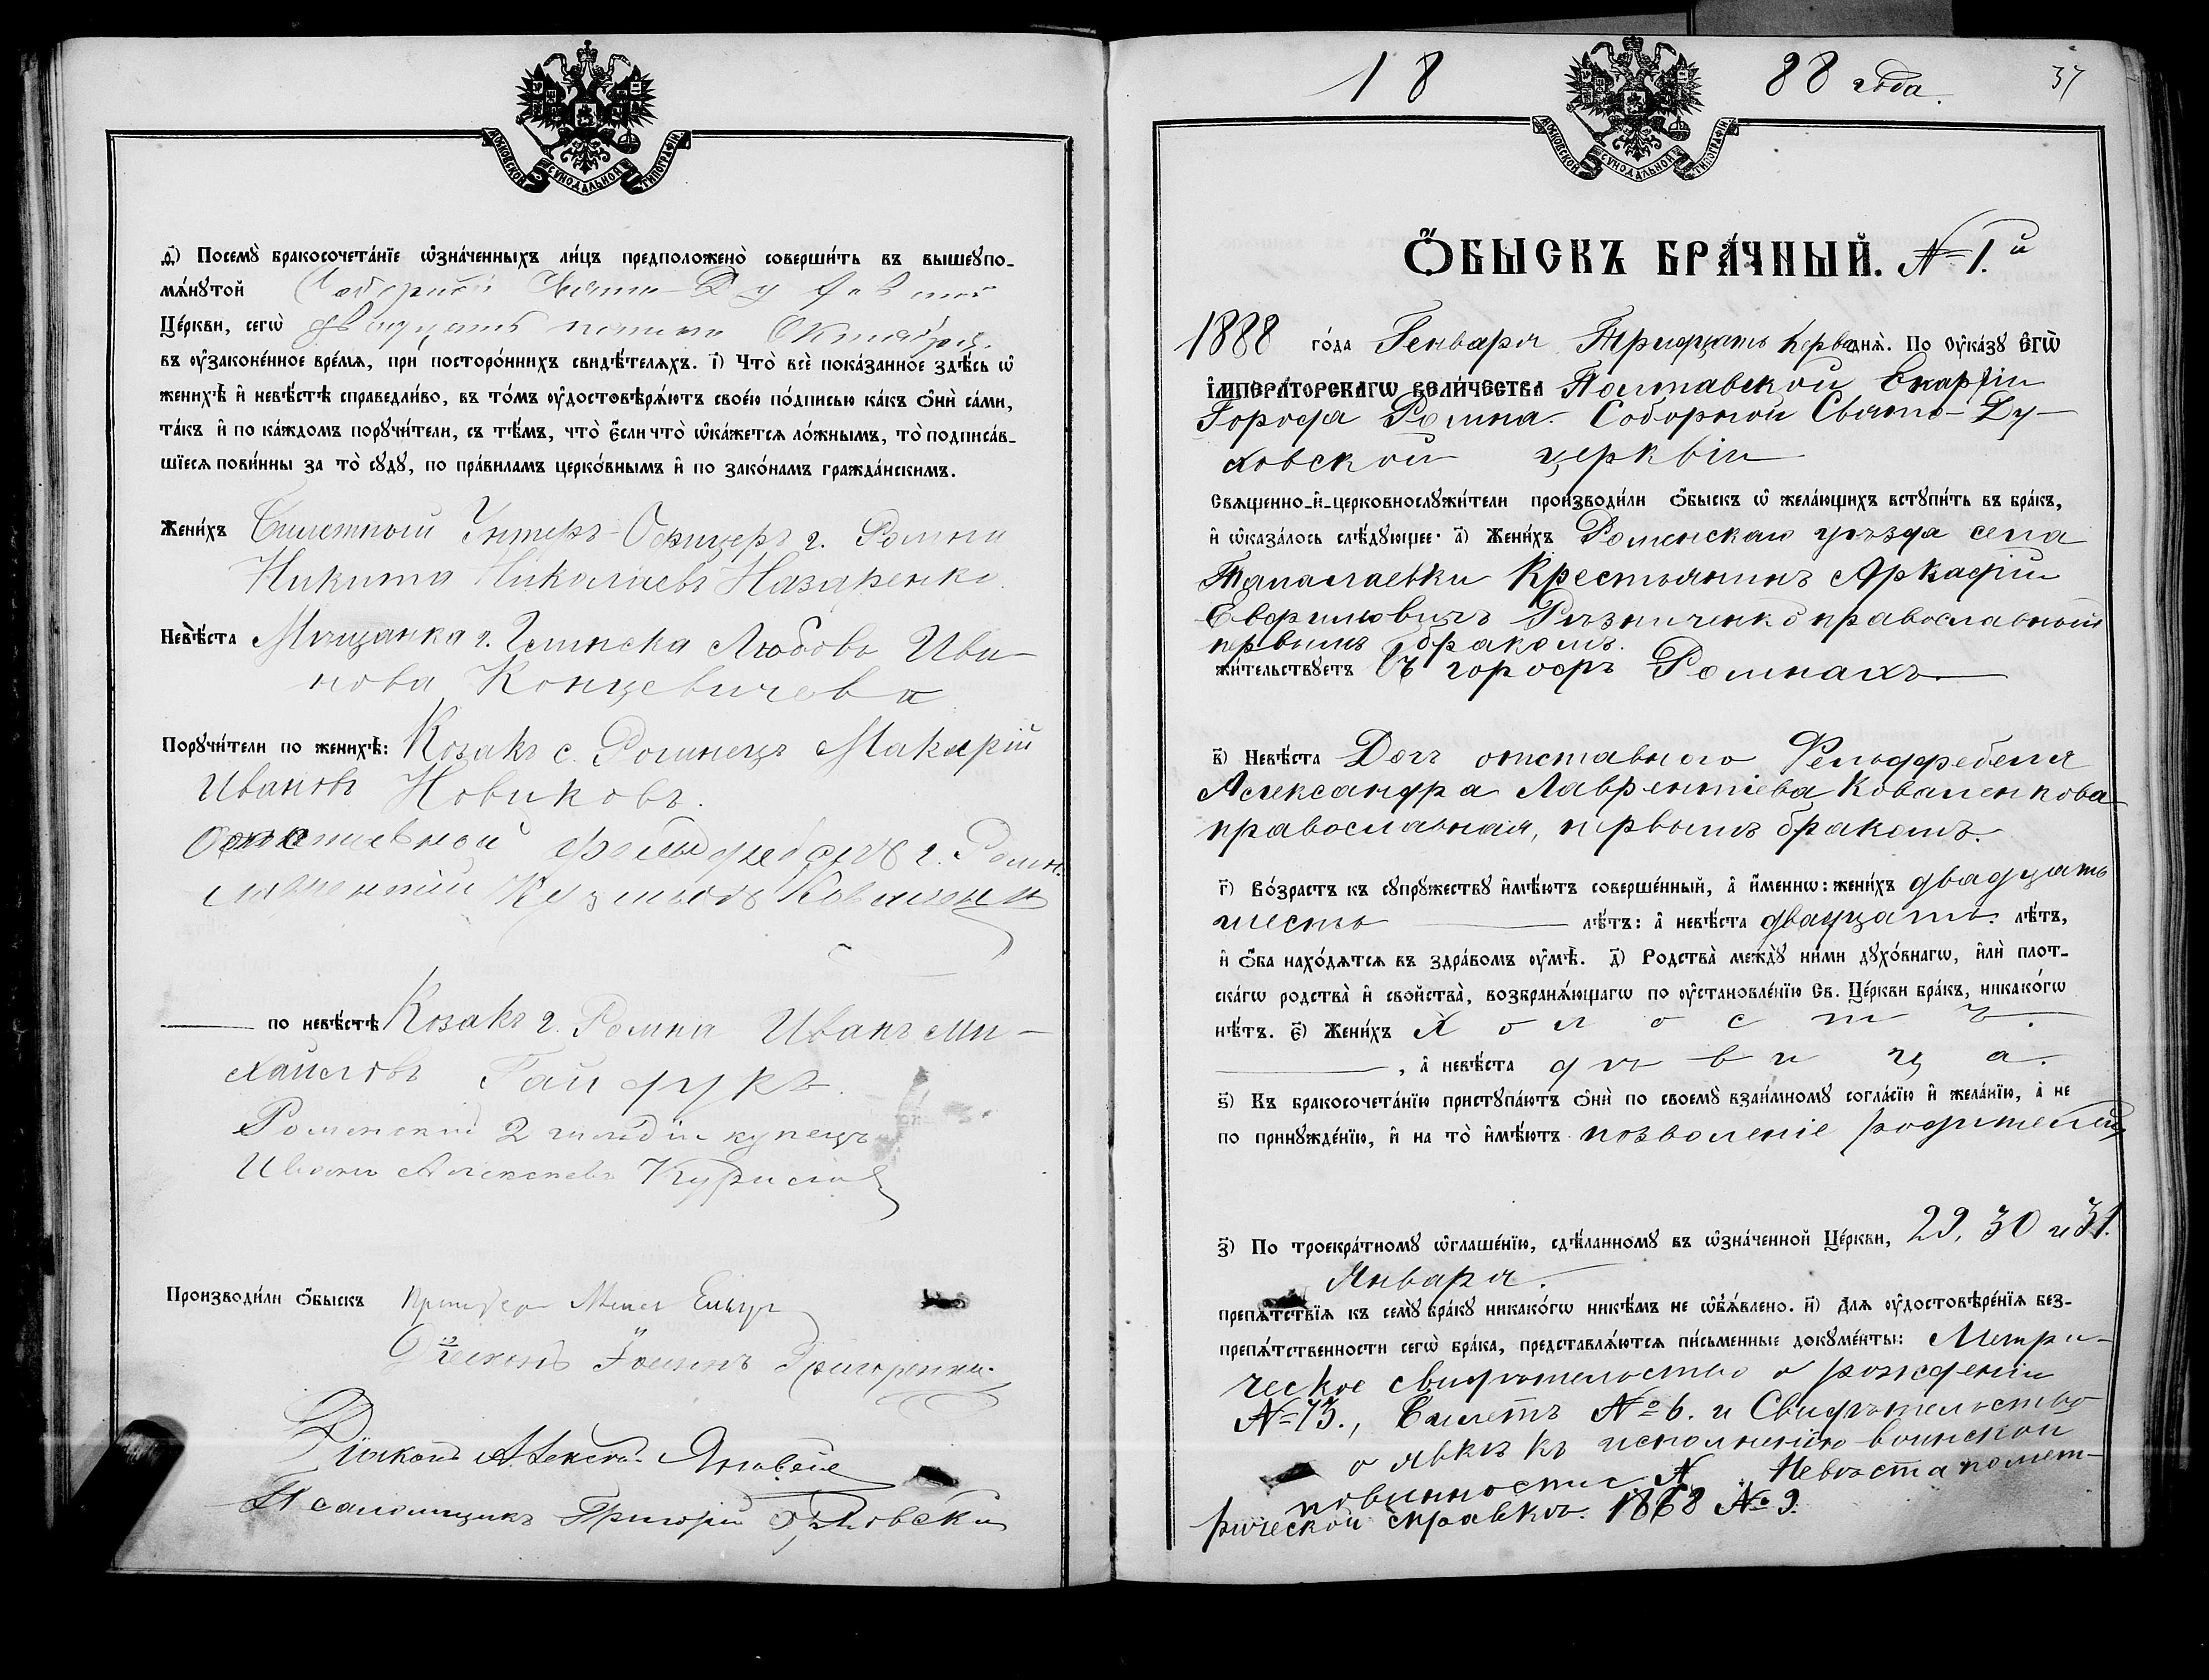 МОСКОВСКОЙ СѴНОДАЛЬНОЙ ТИПОГРАФІИ
д҃і) Посемꙋ̀ бракосочета́нїе ѡ҆зна́ченныхъ ли́цъ предположено̀ соверши́ть въ вышеꙋпо-
мѧ́нꙋтой Соборной Свято-Духовской
Це́ркви, сегѡ̀ двадцать пятаго Октября
въ ᲂу҆законе́нное вре́мѧ, при посторо́ннихъ свидѣ́телѧхъ. і҃) Что̀ всѐ пока́занное здѣ́сь ѡ҆
женихѣ̀ и҆ невѣ́стѣ справедли́во, въ то́мъ ᲂу҆достовѣрѧ́ютъ свое́ю по́дписью ка́къ ѻ҆нѝ са́ми,
та́къ и҆ по ка́ждомъ порꙋчи́тели, съ тѣ́мъ, что̀ є҆́сли что̀ ѡ҆ка́жетсѧ ло́жнымъ, то̀ подписа́в-
шїесѧ пови́нны за то̀ сꙋдꙋ̀, по пра́виламъ церко́внымъ и҆ по зако́намъ гражда́нскимъ.
Жени́хъ Билетный Унтеръ-Офицеръ г. Ромна
Никита Николаевъ Назаренко.
Невѣ́ста Мѣщанка г. Глинска Любовь Ива-
нова Концевичева
Порꙋчи́тели по женихѣ̀: Козакъ с. Роменецъ Макарій
Ивановъ Новиковъ.
Отставной фельдфебель г. Ромн.
Лаврентій Кузьмовъ Коваленко
по невѣ́стѣ Козакъ г. Ромна Иванъ Ми-
хайловъ Гайдукъ
Роменский 2 гильдіи купецъ
Иванъ Алексеевъ
Производи́ли ѻ҆́быскъ Протоіерей
Григоренко.
Діаконъ
Псаломщикъ Григорій
18 88 года. 37
МОСКОВСКОЙ СѴНОДАЛЬНОЙ ТИПОГРАФІИ
Ѻ҆́БЫСКЪ БРА́ЧНЫЙ. №1.й
1888 го́да Генваря Тридцать перва днѧ̀. По ᲂу҆ка́зꙋ Є҆ГѠ̀
І҆МПЕРА́ТОРСКАГѠ ВЕЛИ́ЧЕСТВА Полтавской Епархіи
Города Ромна. Соборной Свято-Ду-
ховской церквіи
Свѧщенно-и҆-церковнослꙋжи́тели производи́ли ѻ҆́быскъ ѡ҆ жела́ющихъ встꙋпи́ть въ бра́къ,
и҆ ѡ҆каза́лось слѣ́дꙋющее: а҃) Жени́хъ Роменскаго уѣзда села
Талалаевки Крестьянинъ Аркадій
Евфимовичъ Рѣзниченко православный
первымъ бракомъ.
жи́тельствꙋетъ Въ городѣ Ромнахъ
в҃) Невѣ́ста Дочь отставного Фельдфебеля
Александра Лаврентіева Коваленкова
православная, первымъ бракомъ.
г҃) Во́зрастъ къ сꙋпрꙋ́жествꙋ и҆мѣ́ютъ соверше́нный, а҆ и҆́меннѡ: жени́хъ двадцать
шесть лѣ́тъ: а҆ невѣ́ста двадцать. лѣ́тъ,
и҆ ѻ҆́ба нахо́дѧтсѧ въ здра́вомъ ᲂу҆мѣ̀. д҃) Родства̀ междꙋ̀ ни́ми дꙋхо́внагѡ, и҆лѝ плот-
ска́гѡ родства̀ и҆ сво́йства, возбранѧ́ющагѡ по ᲂу҆становле́нїю Св. Це́ркви бра́къ, никако́гѡ
нѣ́тъ. є҃) Жени́хъ Холостъ.
, а҆ невѣ́ста дѣвица.
ѕ҃) Къ бракосочета́нїю пристꙋпа́ютъ ѻ҆нѝ по своемꙋ̀ взаи́мномꙋ согла́сїю и҆ жела́нїю, а҆ не
по принꙋжде́нїю, и҆ на то̀ и҆мѣ́ютъ позволеніе родителей
з҃) По троекра́тномꙋ ѡ҆глаше́нїю, сдѣ́ланномꙋ въ ѡ҆зна́ченной Це́ркви, 29, 30 и 31.
Января.
препѧ́тствїѧ къ семꙋ̀ бра́кꙋ никако́гѡ никѣ́мъ не ѡ҆б̾ѧ́влено. и҃) Длѧ ᲂу҆достовѣре́нїѧ без-
препѧ́тственности сегѡ̀ бра́ка, представлѧ́ютсѧ пи́сьменные докꙋме́нты: Метри-
ческое свидѣтельство о рожденіи
№73., Билетъ №6. и Свидѣтельство
о явкѣ къ исполненію воинской
повинности №. Невѣста по мет-
рической справкѣ. 1868 №9.